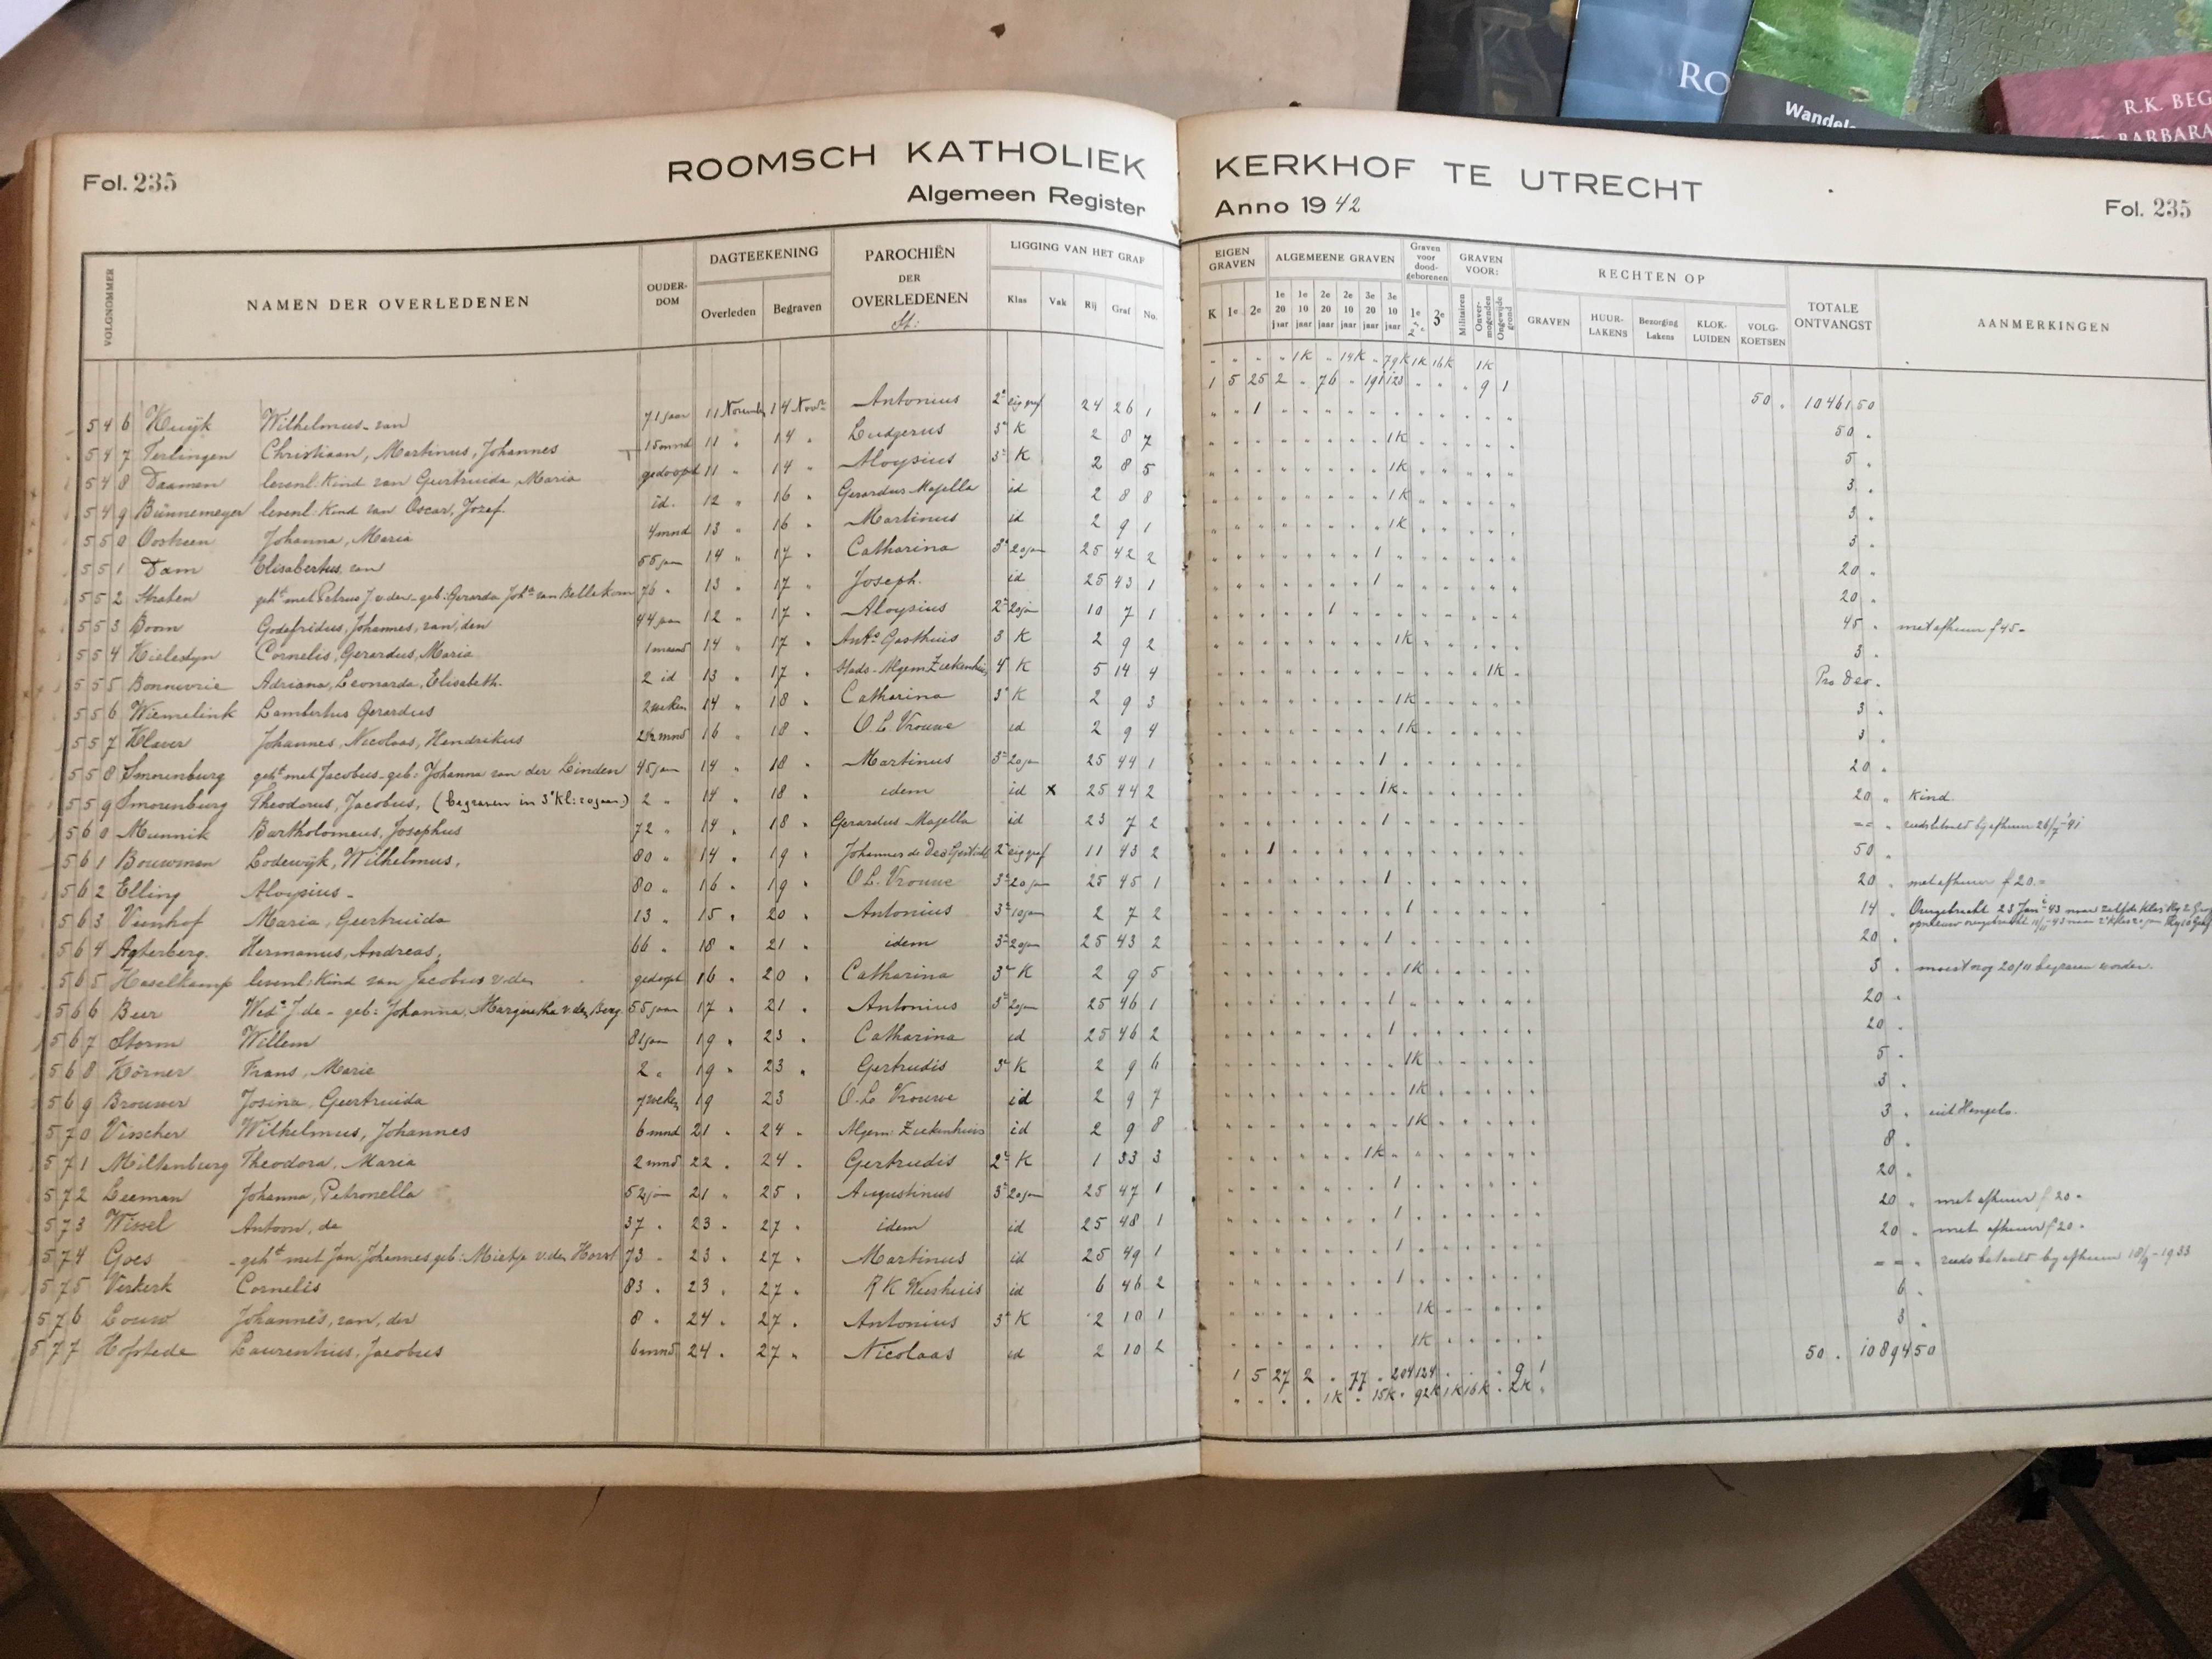 RO
Wandel
R.K. BEG
BARBARA
Fol. 235
ROOMSCH KATHOLIEK KERKHOF TE UTRECHT
Algemeen Register Anno 1942
Fol. 235
VOLGNOMMER NAMEN DER OVERLEDENEN OUDERDOM DAGTEEKENING Overleden Begraven PAROCHIËN DER OVERLEDENEN St: LIGGING VAN HET GRAF Klas Vak Rij Graf No.
EIGEN GRAVEN K 1e 2e ALGEMEENE GRAVEN 1e 20 jaar 1e 10 jaar 2e 20 jaar 2e 10 jaar 3e 20 jaar 3e 10 jaar Graven voor dood-geborenen 1e 2e 3e GRAVEN VOOR: Militairen Onvermogenden Ongewijde grond RECHTEN OP GRAVEN HUUR-LAKENS Bezorging Lakens KLOK-LUIDEN VOLG-KOETSEN TOTALE ONTVANGST AANMERKINGEN
" " " " 1K " 14K " 79K 1K 16K 1K
1 5 25 2 " 76 " 191 123 " " " 9 1 50 . 10461,50
546 Wilhelmus van 71 jaar 11 Novemb 14 Novr Antonius 2e eig graf 24 26 1 1 50 .
547 Terlingen Christiaan, Martinus, Johannes 15 mnd 11 " 14 " Ludgerus 3e K 2 8 7 1K 5 .
548 Daamen levenl: Kind van Geertruida, Maria gedoopt 11 " 14 " Aloysius 3e K 2 8 5 1K 3 .
549 Bünnemeyer levenl: Kind van Oscar, Jozef. id. 12 " 16 " Gerardus Majella id 2 8 8 1K 3 .
550 Johanna, Maria 4 mnd 13 " 16 " Martinus id 2 9 1 1K 3 .
551 Dam Elisabertus, van 55 jaar 14 " 17 " Catharina 3e 20 jaar 25 42 2 1 20 .
552 Straten geht met Petrus J. v den - geb: Gerarda Joha van Bellekom 76 " 13 " 17 " Joseph. id 25 43 1 1 20 .
553 Boom Godefridus, Johannes, van, den 44 jaar 12 " 17 " Aloysius 2e 20 jaar 10 7 1 1 45 . met afhuur f 45 -
554 Cornelis, Gerardus, Maria 1 maand 14 " 17 " Ants Gasthuis 3 K 2 9 2 1K 3 .
555 Adriana, Leonarda, Elisabeth. 2 id 13 " 17 " Stads - Algem Ziekenhuis 4e K 5 14 4 1K Pro Deo.
556 Wiemelink Lambertus Gerardus 2 weken 14 " 18 " Catharina 3e K 2 9 3 1K 3 .
557 Klaver Johannes, Nicolaas, Hendrikus 2½ mnd 16 " 18 " O. L. Vrouwe id 2 9 4 1K 3 .
558 Smorenburg geht met Jacobus - geb: Johanna van der Linden 45 jaar 14 " 18 " Martinus 3e 20 jaar 25 44 1 1 20 .
559 Smorenburg Theodorus, Jacobus, (begraven in 3e Kl: 20 jaar) 2 " 14 " 18 " idem id x 25 44 2 1K 20 . Kind.
560 Munnik Bartholomeus, Josephus 72 " 14 " 18 " Gerardus Majella id 23 7 2 1 = = .
561 Bouwman Lodewijk, Wilhelmus, 80 " 14 " 19 " Johannes de Deo 2e eig graf 11 43 2 1 50 .
562 Elling Aloysius - 80 " 16 " 19 " O. L. Vrouwe 3e 20 jaar 25 45 1 1 20 . met afhuur f 20 .=
563 Veenhof Maria, Geertruida 13 " 15 " 20 " Antonius 3e 10 jaar 2 7 2 1 14 . Overgebracht 23 Jan 43 naar zelfde Klas
564 Agterberg. Hermanus, Andreas, 66 " 18 " 21 " idem 3e 20 jaar 25 43 2 1 20 .
565 Hasselkamp levenl: Kind van Jacobus v den gedoopt 16 " 20 " Catharina 3e K 2 9 5 1K 3 . moest nog 20/11 begraven worden.
566 Beer Wede J. de - geb: Johanna, Margaretha v. den Berg. 55 jaar 17 " 21 " Antonius 3e 20 jaar 25 46 1 1 20 .
567 Storm Willem 81 jaar 19 " 23 " Catharina id 25 46 2 1 20 .
568 Körner Frans, Marie 2 " 19 " 23 " Gertrudis 3e K 2 9 6 1K 5 .
569 Brouwer Josina, Geertruida 7 weken 19 23 O. L. Vrouwe id 2 9 7 1K 3 .
570 Visscher Wilhelmus, Johannes 6 mnd 21 " 24 " Algem: Ziekenhuis id 2 9 8 1K 3 . uit Hengelo.
571 Miltenburg Theodora, Maria 2 mnd 22 " 24 " Gertrudis 2e K 1 33 3 1K 8 .
572 Leeman Johanna, Petronella 52 jaar 21 " 25 " Augustinus 3e 20 jaar 25 47 1 1 20 .
573 Wissel Antoon, de 37 " 23 " 27 " idem id 25 48 1 1 20 . met afhuur f 20 -
574 Goes - geht met Jan, Johannes geb: Mietje v. den Horst 73 " 23 " 27 " Martinus id 25 49 1 1 20 . met afhuur f 20 -
575 Verkerk Cornelis 83 " 23 " 27 " R K Weeshuis id 6 46 2 1 = = . reeds betaald by afhuur 18/9 - 1933
576 Louw Johannes, van, der 8 " 24 " 27 " Antonius 3e K 2 10 1 1K 6 .
577 Hofstede Laurentius, Jacobus 6 mnd 24 " 27 " Nicolaas id 2 10 2 1K 3 .
1 5 27 2 . 77 . 204 124 . . . 9 1 50 . 10894 50
. . . . 1K . 15K . 92K 1K 16K . 2K .